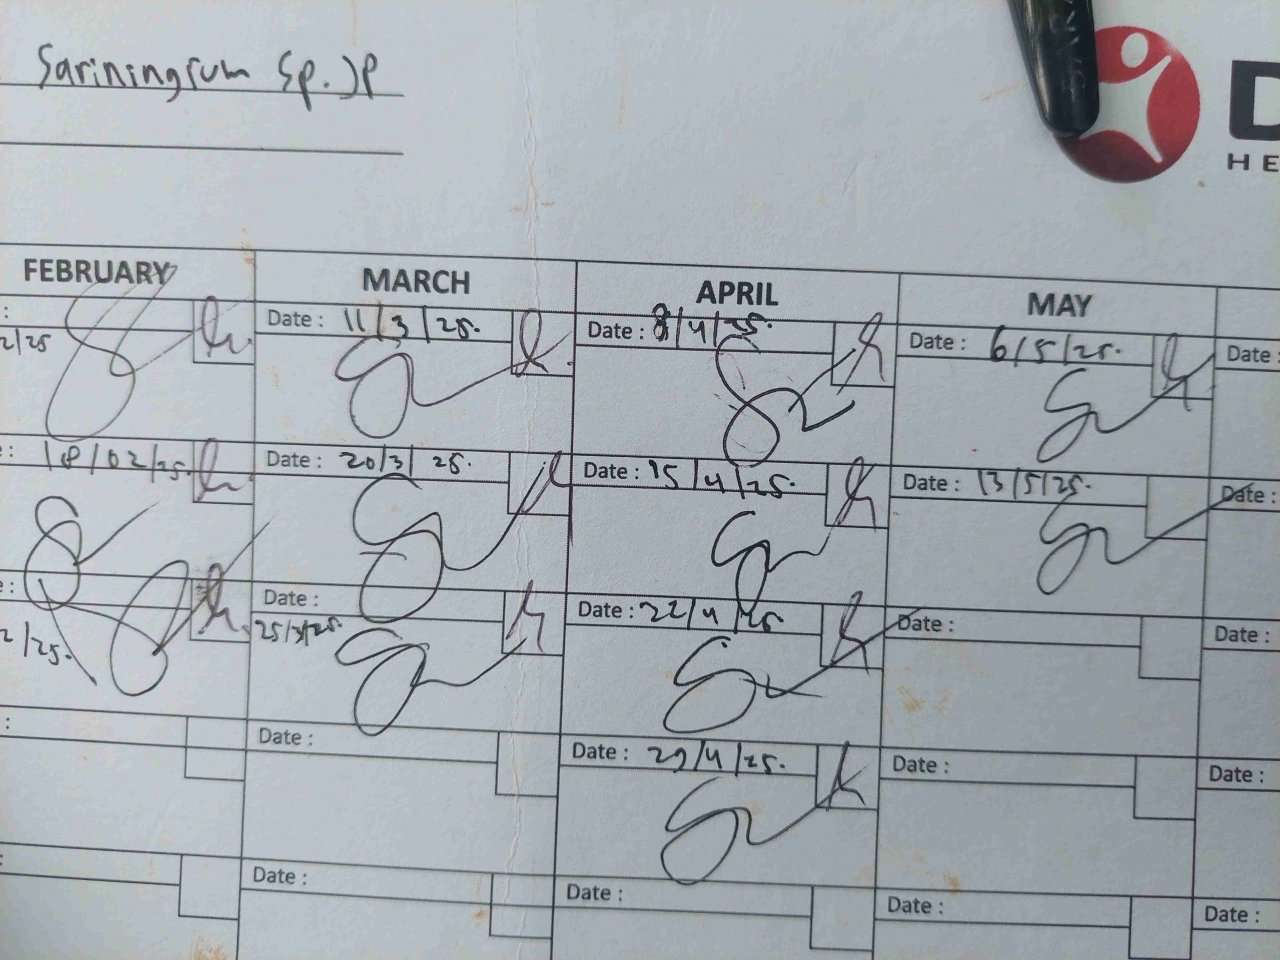 Sariningrum Sp.JP
D
HE
FEBRUARY MARCH APRIL MAY
: Date : 11/3/25. Date : 8/4/25. Date : 6/5/25. Date :
2/25
: 18/02/25. Date : 20/3/25. Date : 15/4/25. Date : 13/5/25. Date :
: Date : Date : 22/4/25 Date : Date :
2/25. 25/3/25.
: Date : Date : 29/4/25. Date : Date :
: Date : Date : Date : Date :